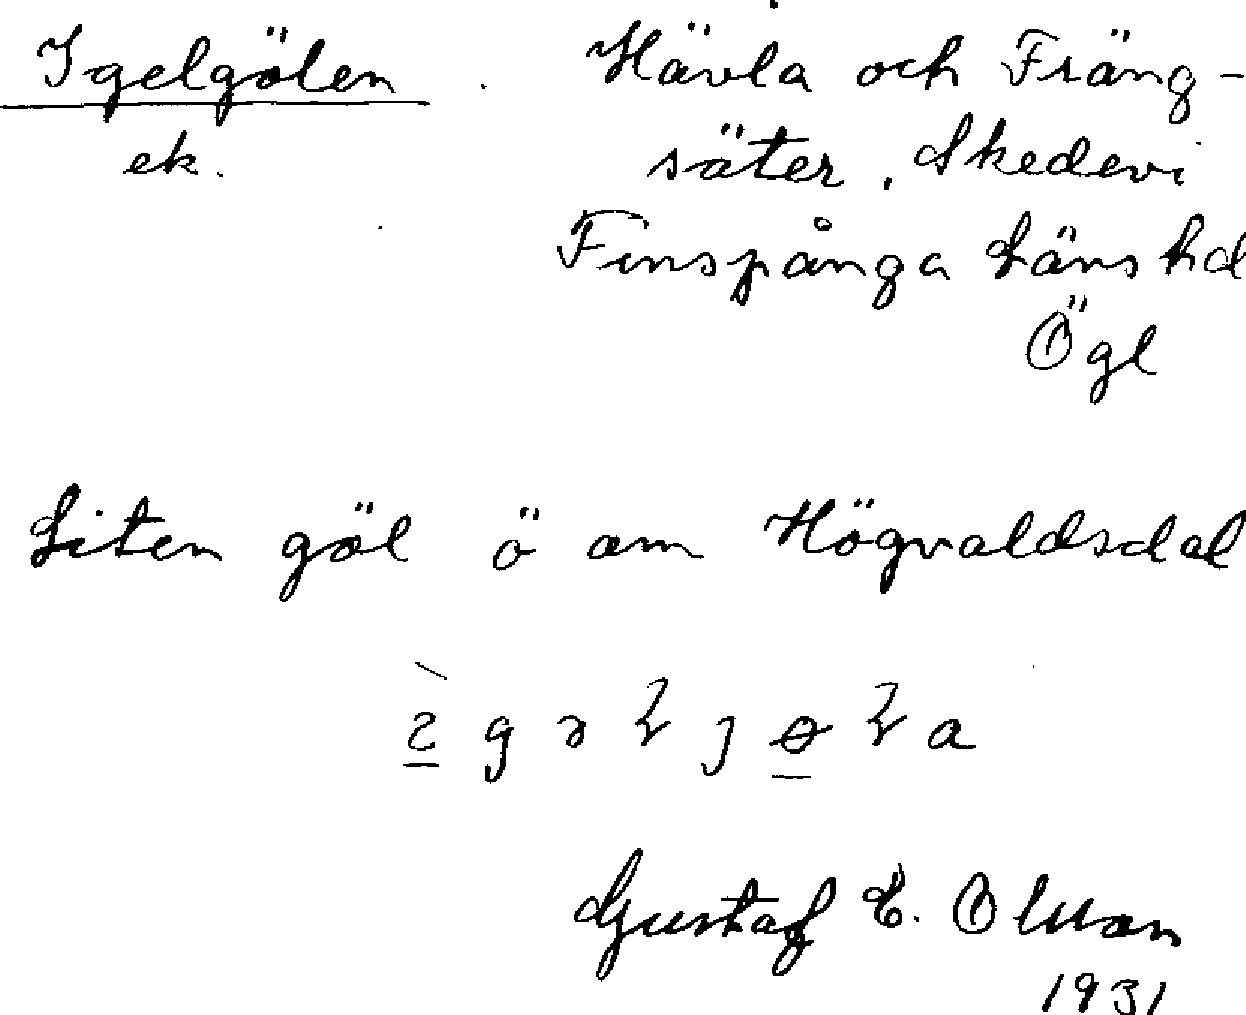 Igelgölen . Hävla och Fräng-
ek. säter. Skedevi
Finspånga läns hd
Ögl
Liten göl ö om Högvaldsdal
Gustaf E. Olsson
1931